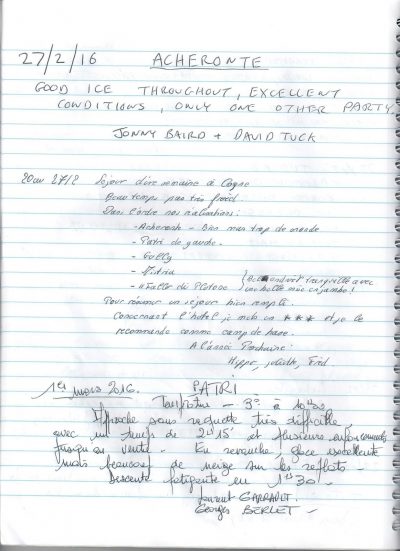 27/2/16 ACHERONTE
GOOD ICE THROUGHOUT, EXCELLENT
CONDITIONS, ONLY ONE OTHER PARTY
JONNY BAIRD + DAVID TUCK
20 au 27/2 Séjour d'une semaine à Cogne
Beau temps pas très froid.
Dans l'ordre nos réalisations:
- Acheronte - Bien mais trop de monde
- Patri de gauche.
- Gully
tranquille avec
une belle
Pour résumer un séjour bien rempli.
Concernant l'hôtel, je mets un *** et je le
recommande comme camp de base.
A l'année Prochaine.
Hippo, Fred.
1er mars 2016. PATRI
- 3° à 10h30
Approche sans raquette très difficile,
avec un temps de 2h15 et plusieurs enfoncements
jusqu'au ventre. En revanche glace excellente
mais beaucoup de neige sur les replats -
Descente fatigante en 1h30.
Laurent
Georges BERLET -